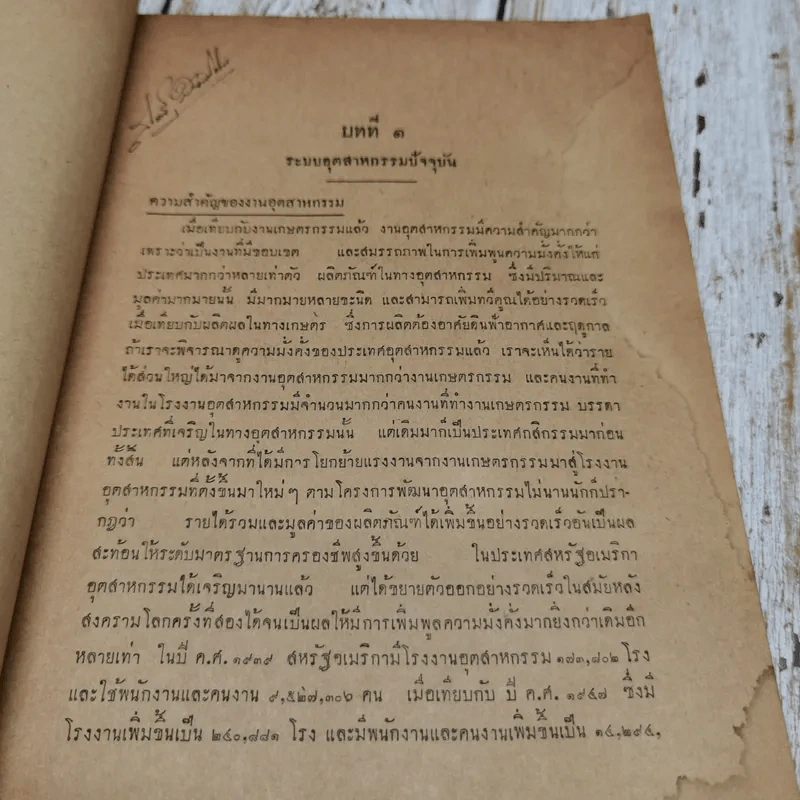 บทที่ ๑
ระบบอุตสาหกรรมปัจจุบัน
ความสำคัญของงานอุตสาหกรรม
เมื่อเทียบกับงานเกษตรกรรมแล้ว งานอุตสาหกรรมมีความสำคัญมากกว่า
เพราะว่าเป็นงานที่มีขอบเขต และสมรรถภาพในการเพิ่มพูนความมั่งคั่งให้แก่
ประเทศมากกว่าหลายเท่าตัว ผลิตภัณฑ์ในทางอุตสาหกรรม ซึ่งมีปริมาณและ
มูลค่ามากมายนั้น มีมากมายหลายชะนิด และสามารถเพิ่มทวีคูณได้อย่างรวดเร็ว
เมื่อเทียบกับผลิตผลในทางเกษตร ซึ่งการผลิตต้องอาศัยดินฟ้าอากาศและฤดูกาล
ถ้าเราจะพิจารณาดูความมั่งคั่งของประเทศอุตสาหกรรมแล้ว เราจะเห็นได้ว่าราย
ได้ส่วนใหญ่ได้มาจากงานอุตสาหกรรมมากกว่างานเกษตรกรรม และคนงานที่ทำ
งานในโรงงานอุตสาหกรรมมีจำนวนมากกว่าคนงานที่ทำงานเกษตรกรรม บรรดา
ประเทศที่เจริญในทางอุตสาหกรรมนั้น แต่เดิมมาก็เป็นประเทศกสิกรรมมาก่อน
ทั้งสิ้น แต่หลังจากที่ได้มีการโยกย้ายแรงงานจากงานเกษตรกรรมมาสู่โรงงาน
อุตสาหกรรมที่ตั้งขึ้นมาใหม่ๆ ตามโครงการพัฒนาอุตสาหกรรมไม่นานนักก็ปรา-
กฏว่า รายได้รวมและมูลค่าของผลิตภัณฑ์ได้เพิ่มขึ้นอย่างรวดเร็วอันเป็นผล
สะท้อนให้ระดับมาตรฐานการครองชีพสูงขึ้นด้วย ในประเทศสหรัฐอเมริกา
อุตสาหกรรมได้เจริญมานานแล้ว แต่ได้ขยายตัวออกอย่างรวดเร็วในสมัยหลัง
สงครามโลกครั้งที่สองได้จนเป็นผลให้มีการเพิ่มพูลความมั่งคั่งมากยิ่งกว่าเดิมอีก
หลายเท่า ในปี ค.ศ. ๑๙๓๙ สหรัฐอเมริกามีโรงงานอุตสาหกรรม ๑๗๓,๘๐๒ โรง
และใช้พนักงานและคนงาน ๙,๕๒๗,๓๐๖ คน เมื่อเทียบกับ ปี ค.ศ. ๑๙๔๗ ซึ่งมี
โรงงานเพิ่มขึ้นเป็น ๒๔๐,๘๘๑ โรง และมีพนักงานและคนงานเพิ่มขึ้นเป็น ๑๔,๒๙๔,